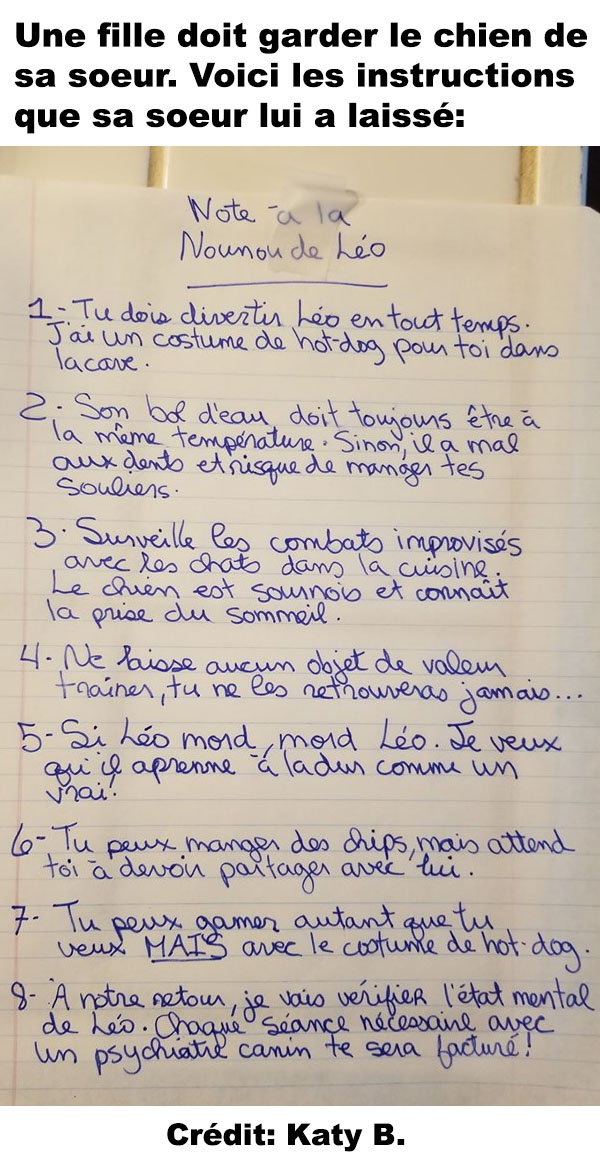 Une fille doit garder le chien de
sa soeur. Voici les instructions
que sa soeur lui a laissé:
Note à la
Nounou de Léo
1- Tu dois divertir Léo en tout temps.
J'ai un costume de hot-dog pour toi dans
la cave.
2- Son bol d'eau doit toujours être à
la même température. Sinon, il a mal
aux dents et risque de manger tes
souliers.
3- Surveille les combats improvisés
avec les chats dans la cuisine.
Le chien est sournois et connaît
la prise du sommeil.
4- Ne laisse aucun objet de valeur
traîner, tu ne les retrouveras jamais...
5- Si Léo mord, mord Léo. Je veux
qu'il aprenne à la dur comme un
vrai!
6- Tu peux manger des chips, mais attend
toi à devoir partager avec lui.
7- Tu peux gamer autant que tu
veux MAIS avec le costume de hot-dog.
8- À notre retour, je vais vérifier l'état mental
de Léo. Chaque séance nécessaire avec
un psychiatre canin te sera facturé!
Crédit: Katy B.